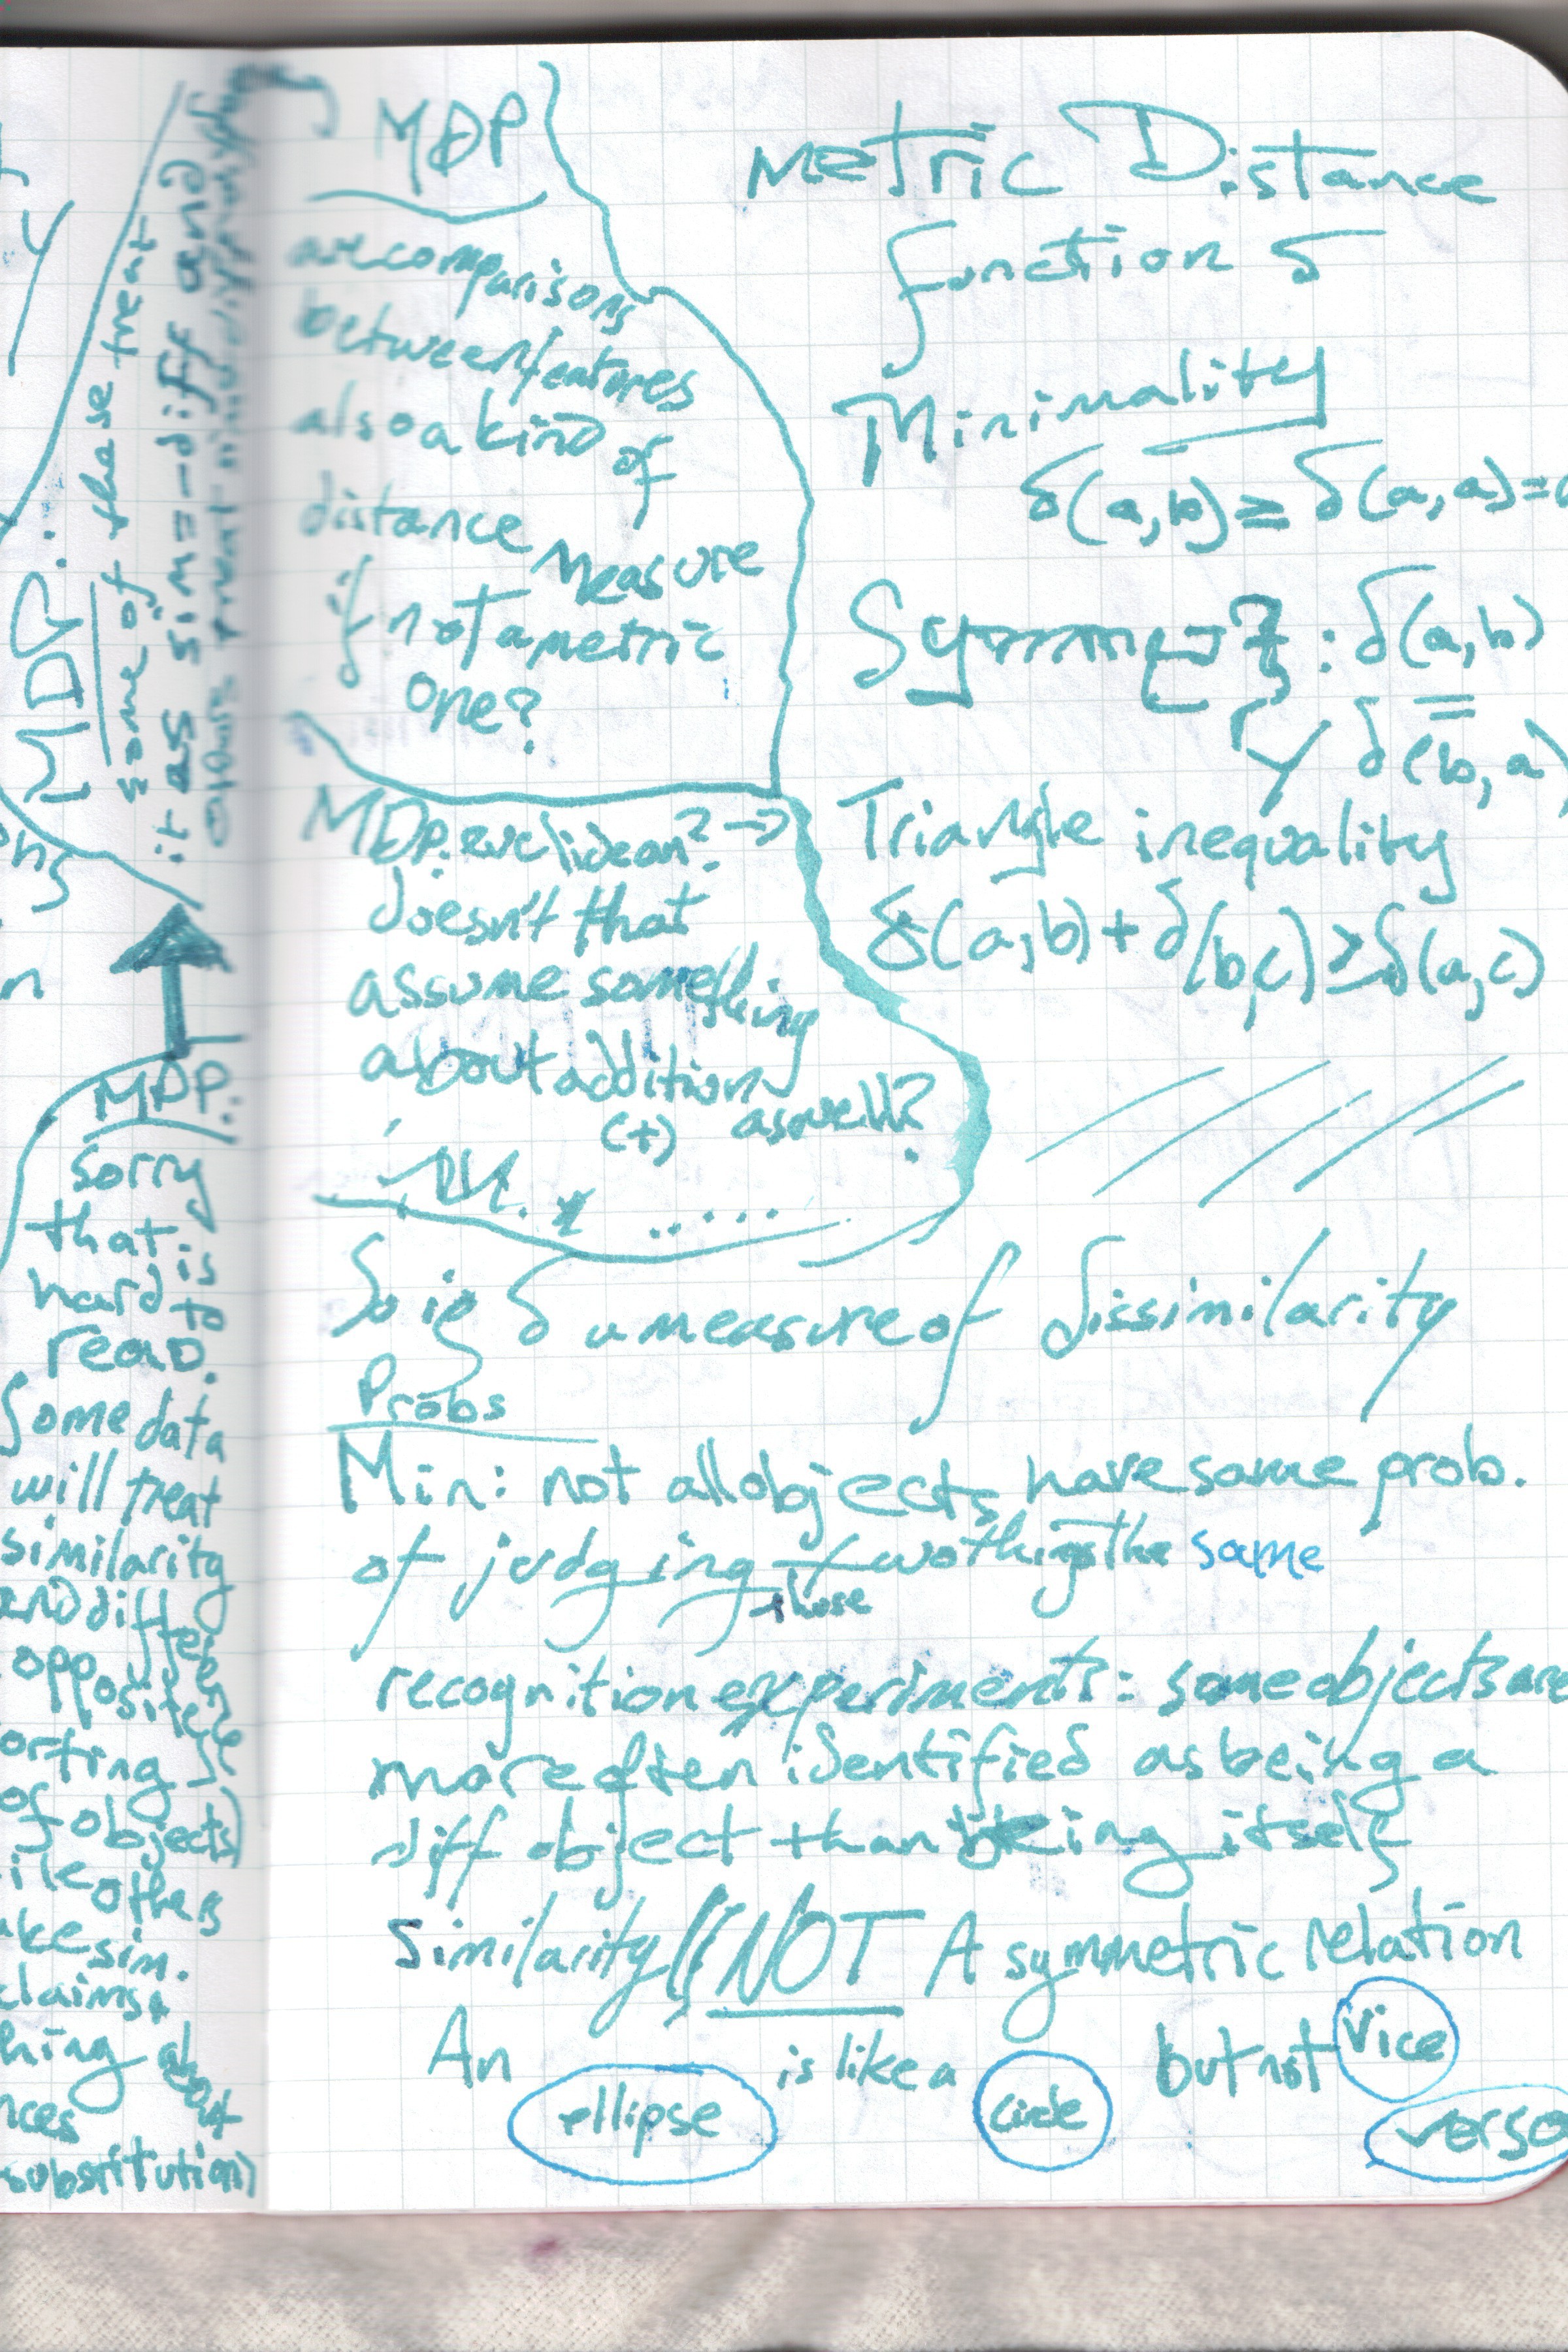 MDP:
some of these treat
it as sim = -diff and
MDP:
sorry
that is
hard to
read.
Some data
will treat
similarity
and differ
opposite
orting
of objects)
others
sim.
claims
about
substitution)
MDP
are comparisons
between features
also a kind of
distance measure
if not a metric
one?
MDP: euclidean? →
doesn't that
assume something
about addition
(+) as well?
Metric Distance
function δ
Minimality
δ(a,b) ≥ δ(a,a) =
Symmet
ry
: δ(a,b)
=
δ(b,a)
Triangle inequality
δ(a,b) + δ(b,c) ≥ δ(a,c)
So is δ a measure of dissimilarity
Probs
Min: not all objects have same prob.
of judging two things the same
those
recognition experiments: some objects are
more often identified as being a
diff object than being itself
Similarity NOT A symmetric relation
An ellipse is like a circle but not vice
versa